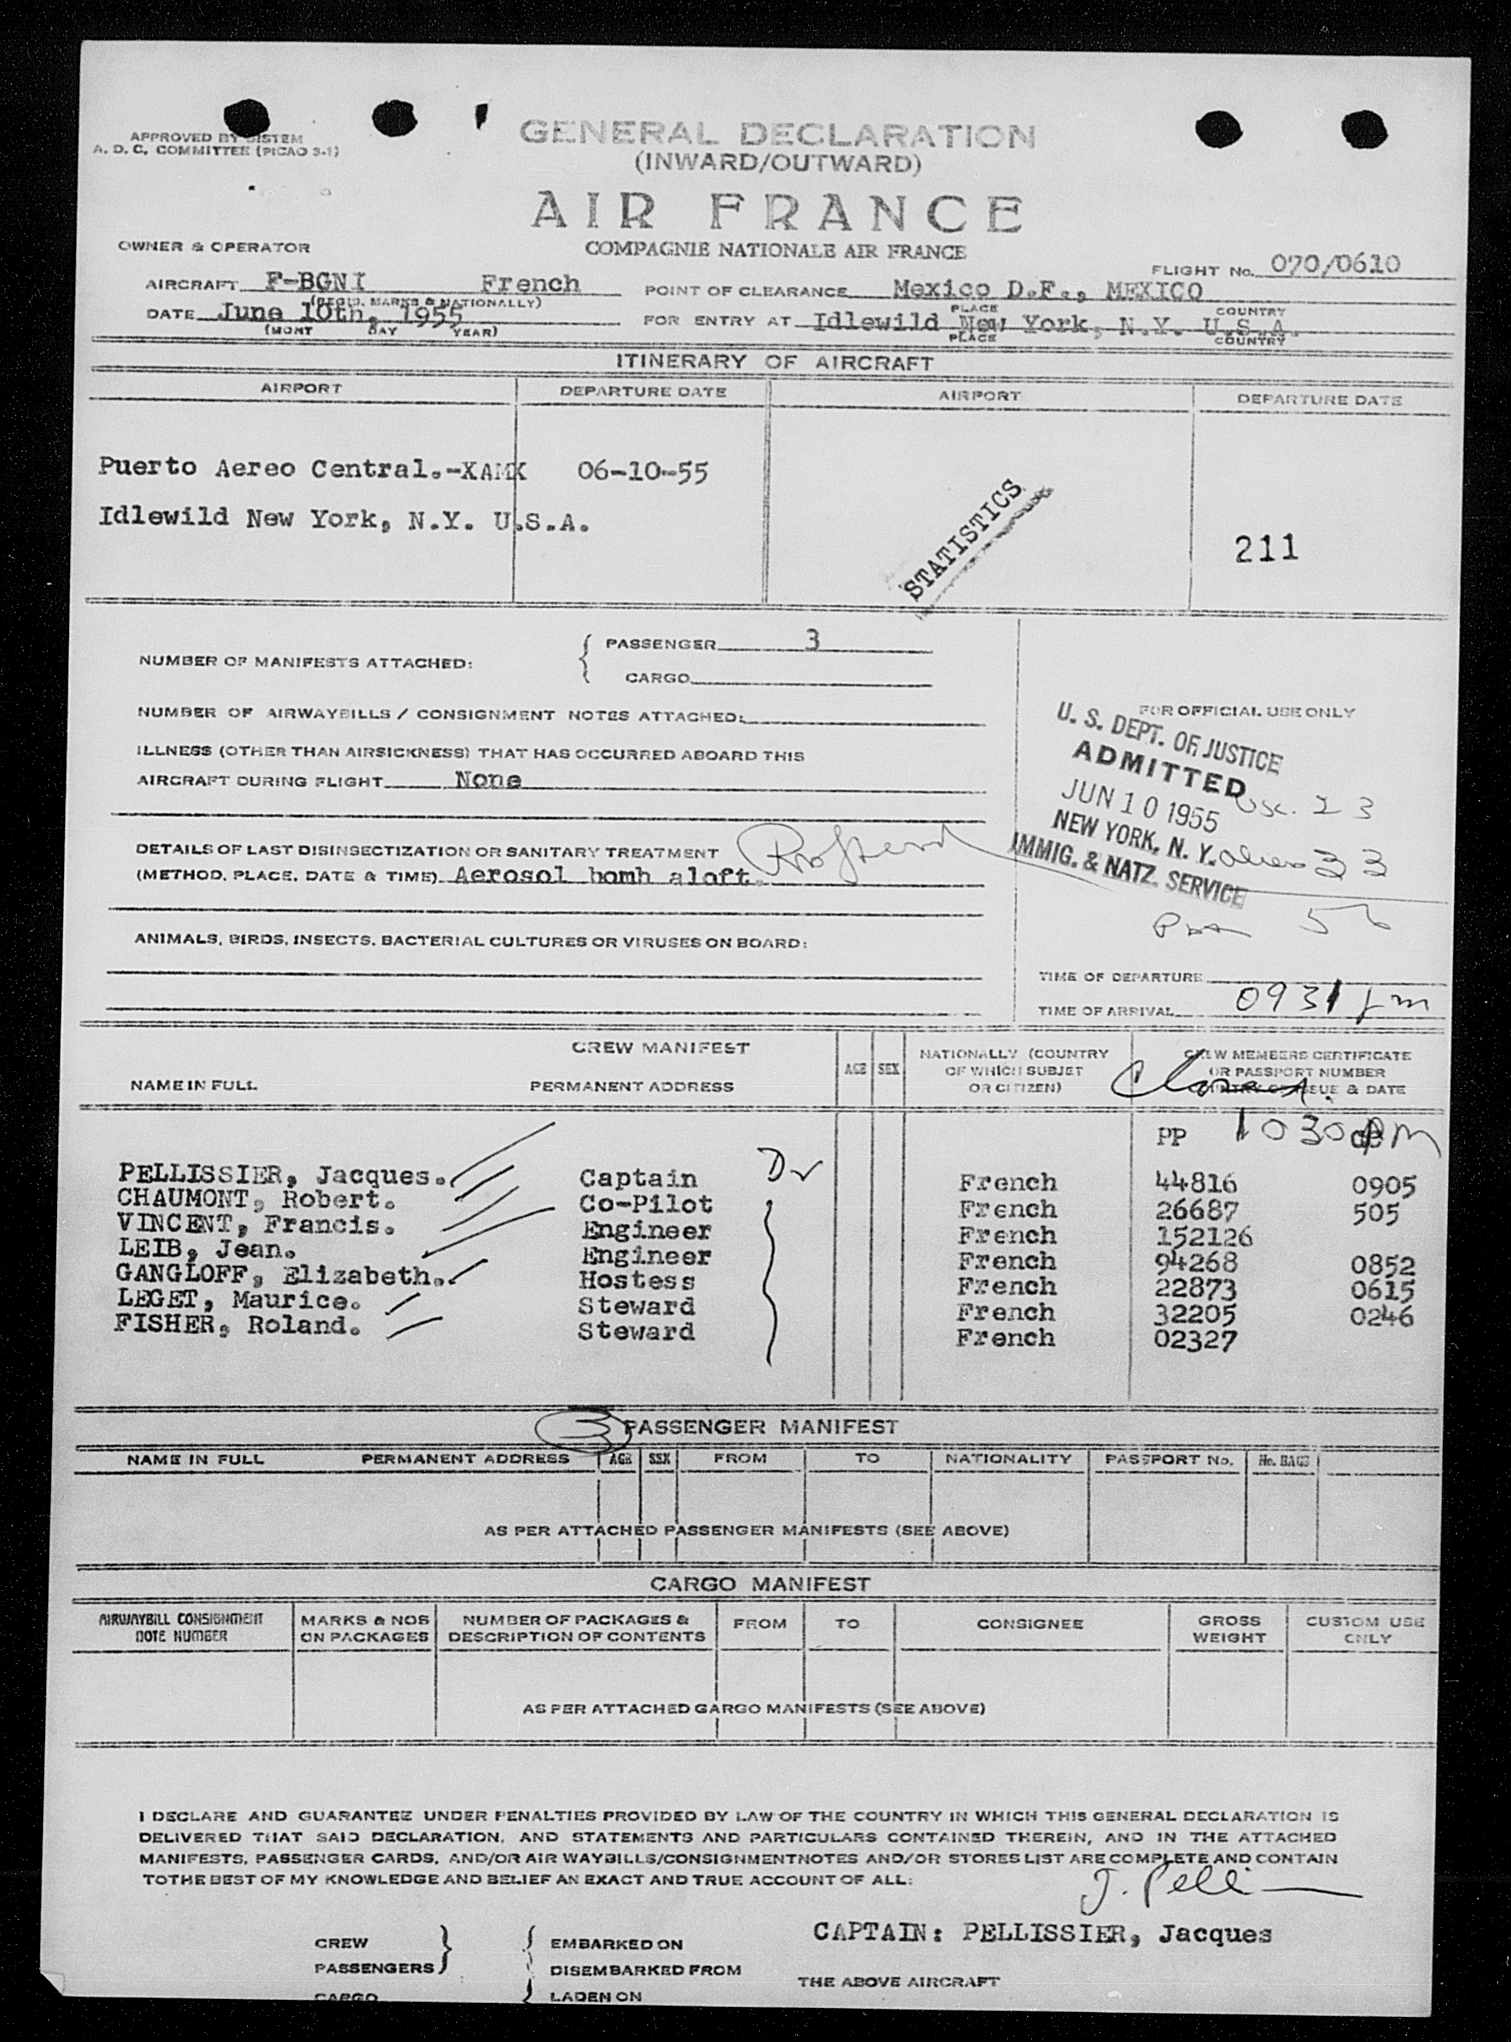 APPROVED BY SISTEM
A. D. C. COMMITTEE (PICAO 3-1)
GENERAL DECLARATION
(INWARD/OUTWARD)
AIR FRANCE
COMPAGNIE NATIONALE AIR FRANCE
OWNER & OPERATOR
FLIGHT No. 070/0610
AIRCRAFT F-BGNI French
(REGIS. MARKS & NATIONALLY)
POINT OF CLEARANCE Mexico D.F., MEXICO
PLACE COUNTRY
DATE June 10th, 1955
(MONT DAY YEAR)
FOR ENTRY AT Idlewild New York, N.Y. U.S.A.
PLACE COUNTRY
ITINERARY OF AIRCRAFT
AIRPORT DEPARTURE DATE AIRPORT DEPARTURE DATE
Puerto Aereo Central.-XAMX 06-10-55
Idlewild New York, N.Y. U.S.A.
STATISTICS
211
NUMBER OF MANIFESTS ATTACHED:
PASSENGER 3
CARGO
NUMBER OF AIRWAYBILLS / CONSIGNMENT NOTES ATTACHED:
ILLNESS (OTHER THAN AIRSICKNESS) THAT HAS OCCURRED ABOARD THIS
AIRCRAFT DURING FLIGHT None
DETAILS OF LAST DISINSECTIZATION OR SANITARY TREATMENT
(METHOD, PLACE, DATE & TIME) Aerosol bomb aloft.
ANIMALS, BIRDS, INSECTS, BACTERIAL CULTURES OR VIRUSES ON BOARD:
FOR OFFICIAL USE ONLY
U. S. DEPT. OF JUSTICE
ADMITTED
JUN 10 1955
NEW YORK, N. Y.
IMMIG. & NATZ. SERVICE
usc. 23
33
56
TIME OF DEPARTURE
TIME OF ARRIVAL 0931 pm
CREW MANIFEST
NAME IN FULL PERMANENT ADDRESS
AGE SEX
NATIONALLY (COUNTRY
OF WHICH SUBJET
OR CITIZEN)
CREW MEMBERS CERTIFICATE
OR PASSPORT NUMBER
COUNTRY OF ISSUE & DATE
PP 1030 PM
PELLISSIER, Jacques. Captain French 44816 0905
CHAUMONT, Robert. Co-Pilot French 26687 505
VINCENT, Francis. Engineer French 152126
LEIB, Jean. Engineer French 94268 0852
GANGLOFF, Elizabeth. Hostess French 22873 0615
LEGET, Maurice. Steward French 32205 0246
FISHER, Roland. Steward French 02327
3
PASSENGER MANIFEST
NAME IN FULL PERMANENT ADDRESS AGE SEX FROM TO NATIONALITY PASSPORT No. No. BAGS
AS PER ATTACHED PASSENGER MANIFESTS (SEE ABOVE)
CARGO MANIFEST
AIRWAYBILL CONSIGNMENT
NOTE NUMBER
MARKS & NOS
ON PACKAGES
NUMBER OF PACKAGES &
DESCRIPTION OF CONTENTS
FROM TO CONSIGNEE
GROSS
WEIGHT
CUSTOM USE
ONLY
AS PER ATTACHED GARGO MANIFESTS (SEE ABOVE)
I DECLARE AND GUARANTEE UNDER PENALTIES PROVIDED BY LAW OF THE COUNTRY IN WHICH THIS GENERAL DECLARATION IS
DELIVERED THAT SAID DECLARATION, AND STATEMENTS AND PARTICULARS CONTAINED THEREIN, AND IN THE ATTACHED
MANIFESTS, PASSENGER CARDS, AND/OR AIR WAYBILLS/CONSIGNMENTNOTES AND/OR STORES LIST ARE COMPLETE AND CONTAIN
TOTHE BEST OF MY KNOWLEDGE AND BELIEF AN EXACT AND TRUE ACCOUNT OF ALL:
J. Pelli
CAPTAIN: PELLISSIER, Jacques
CREW
PASSENGERS
CARGO
EMBARKED ON
DISEMBARKED FROM
LADEN ON
THE ABOVE AIRCRAFT